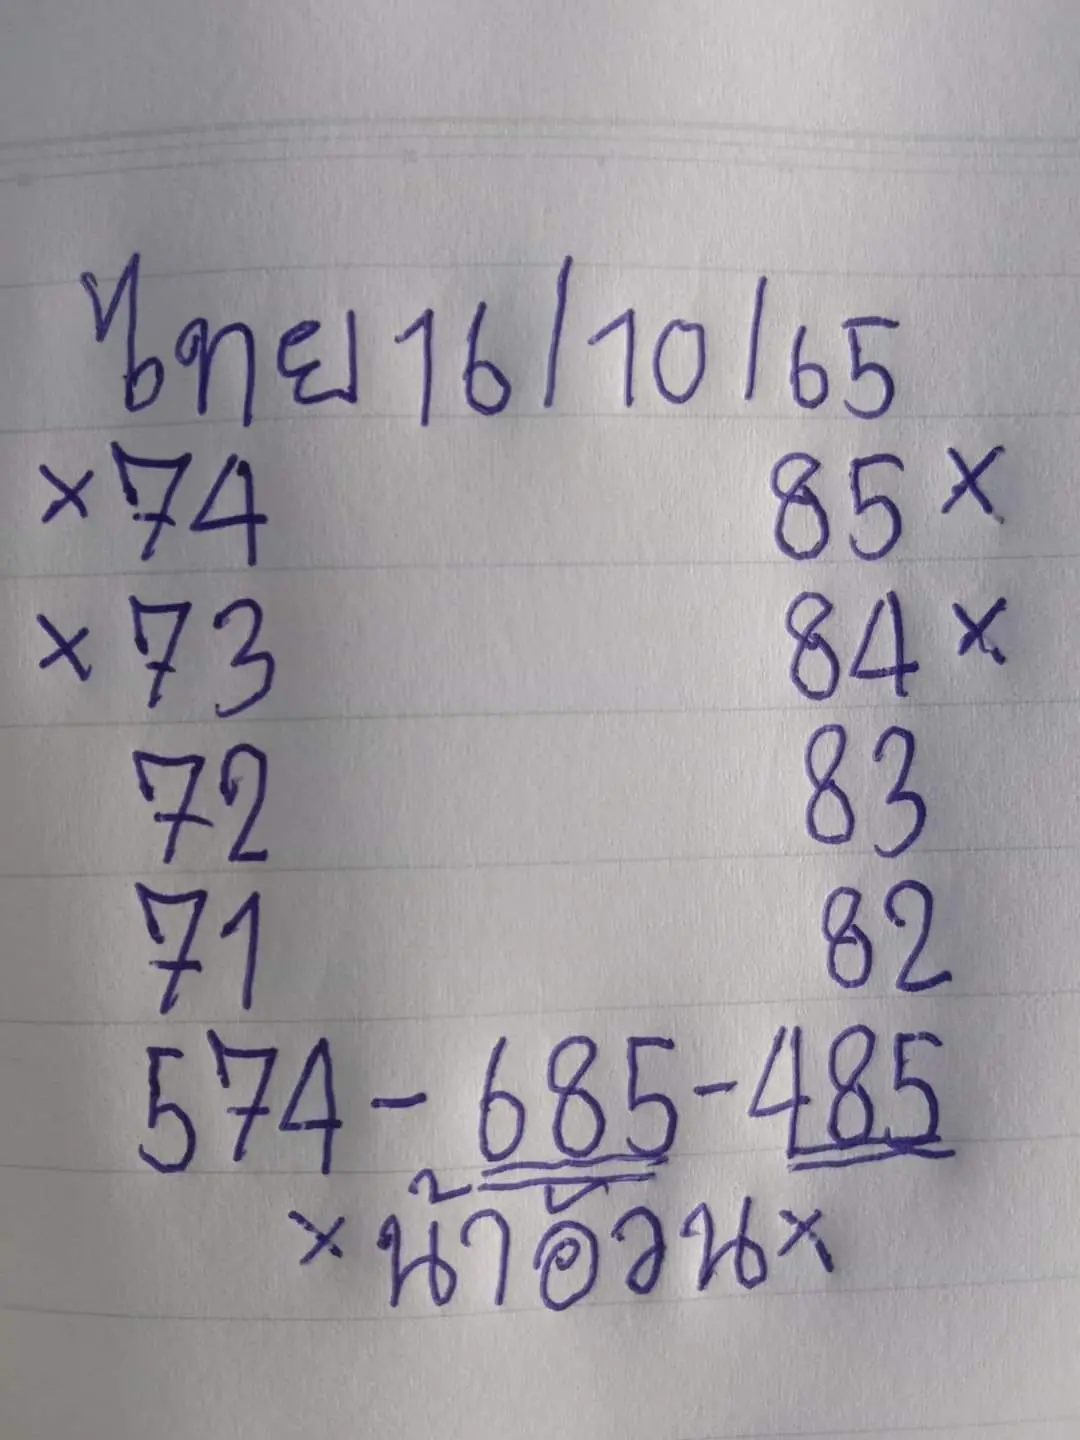 ไทย 16/10/65
×74 85×
×73 84×
72 83
71 82
574-685-485
×น้าอ้วน×